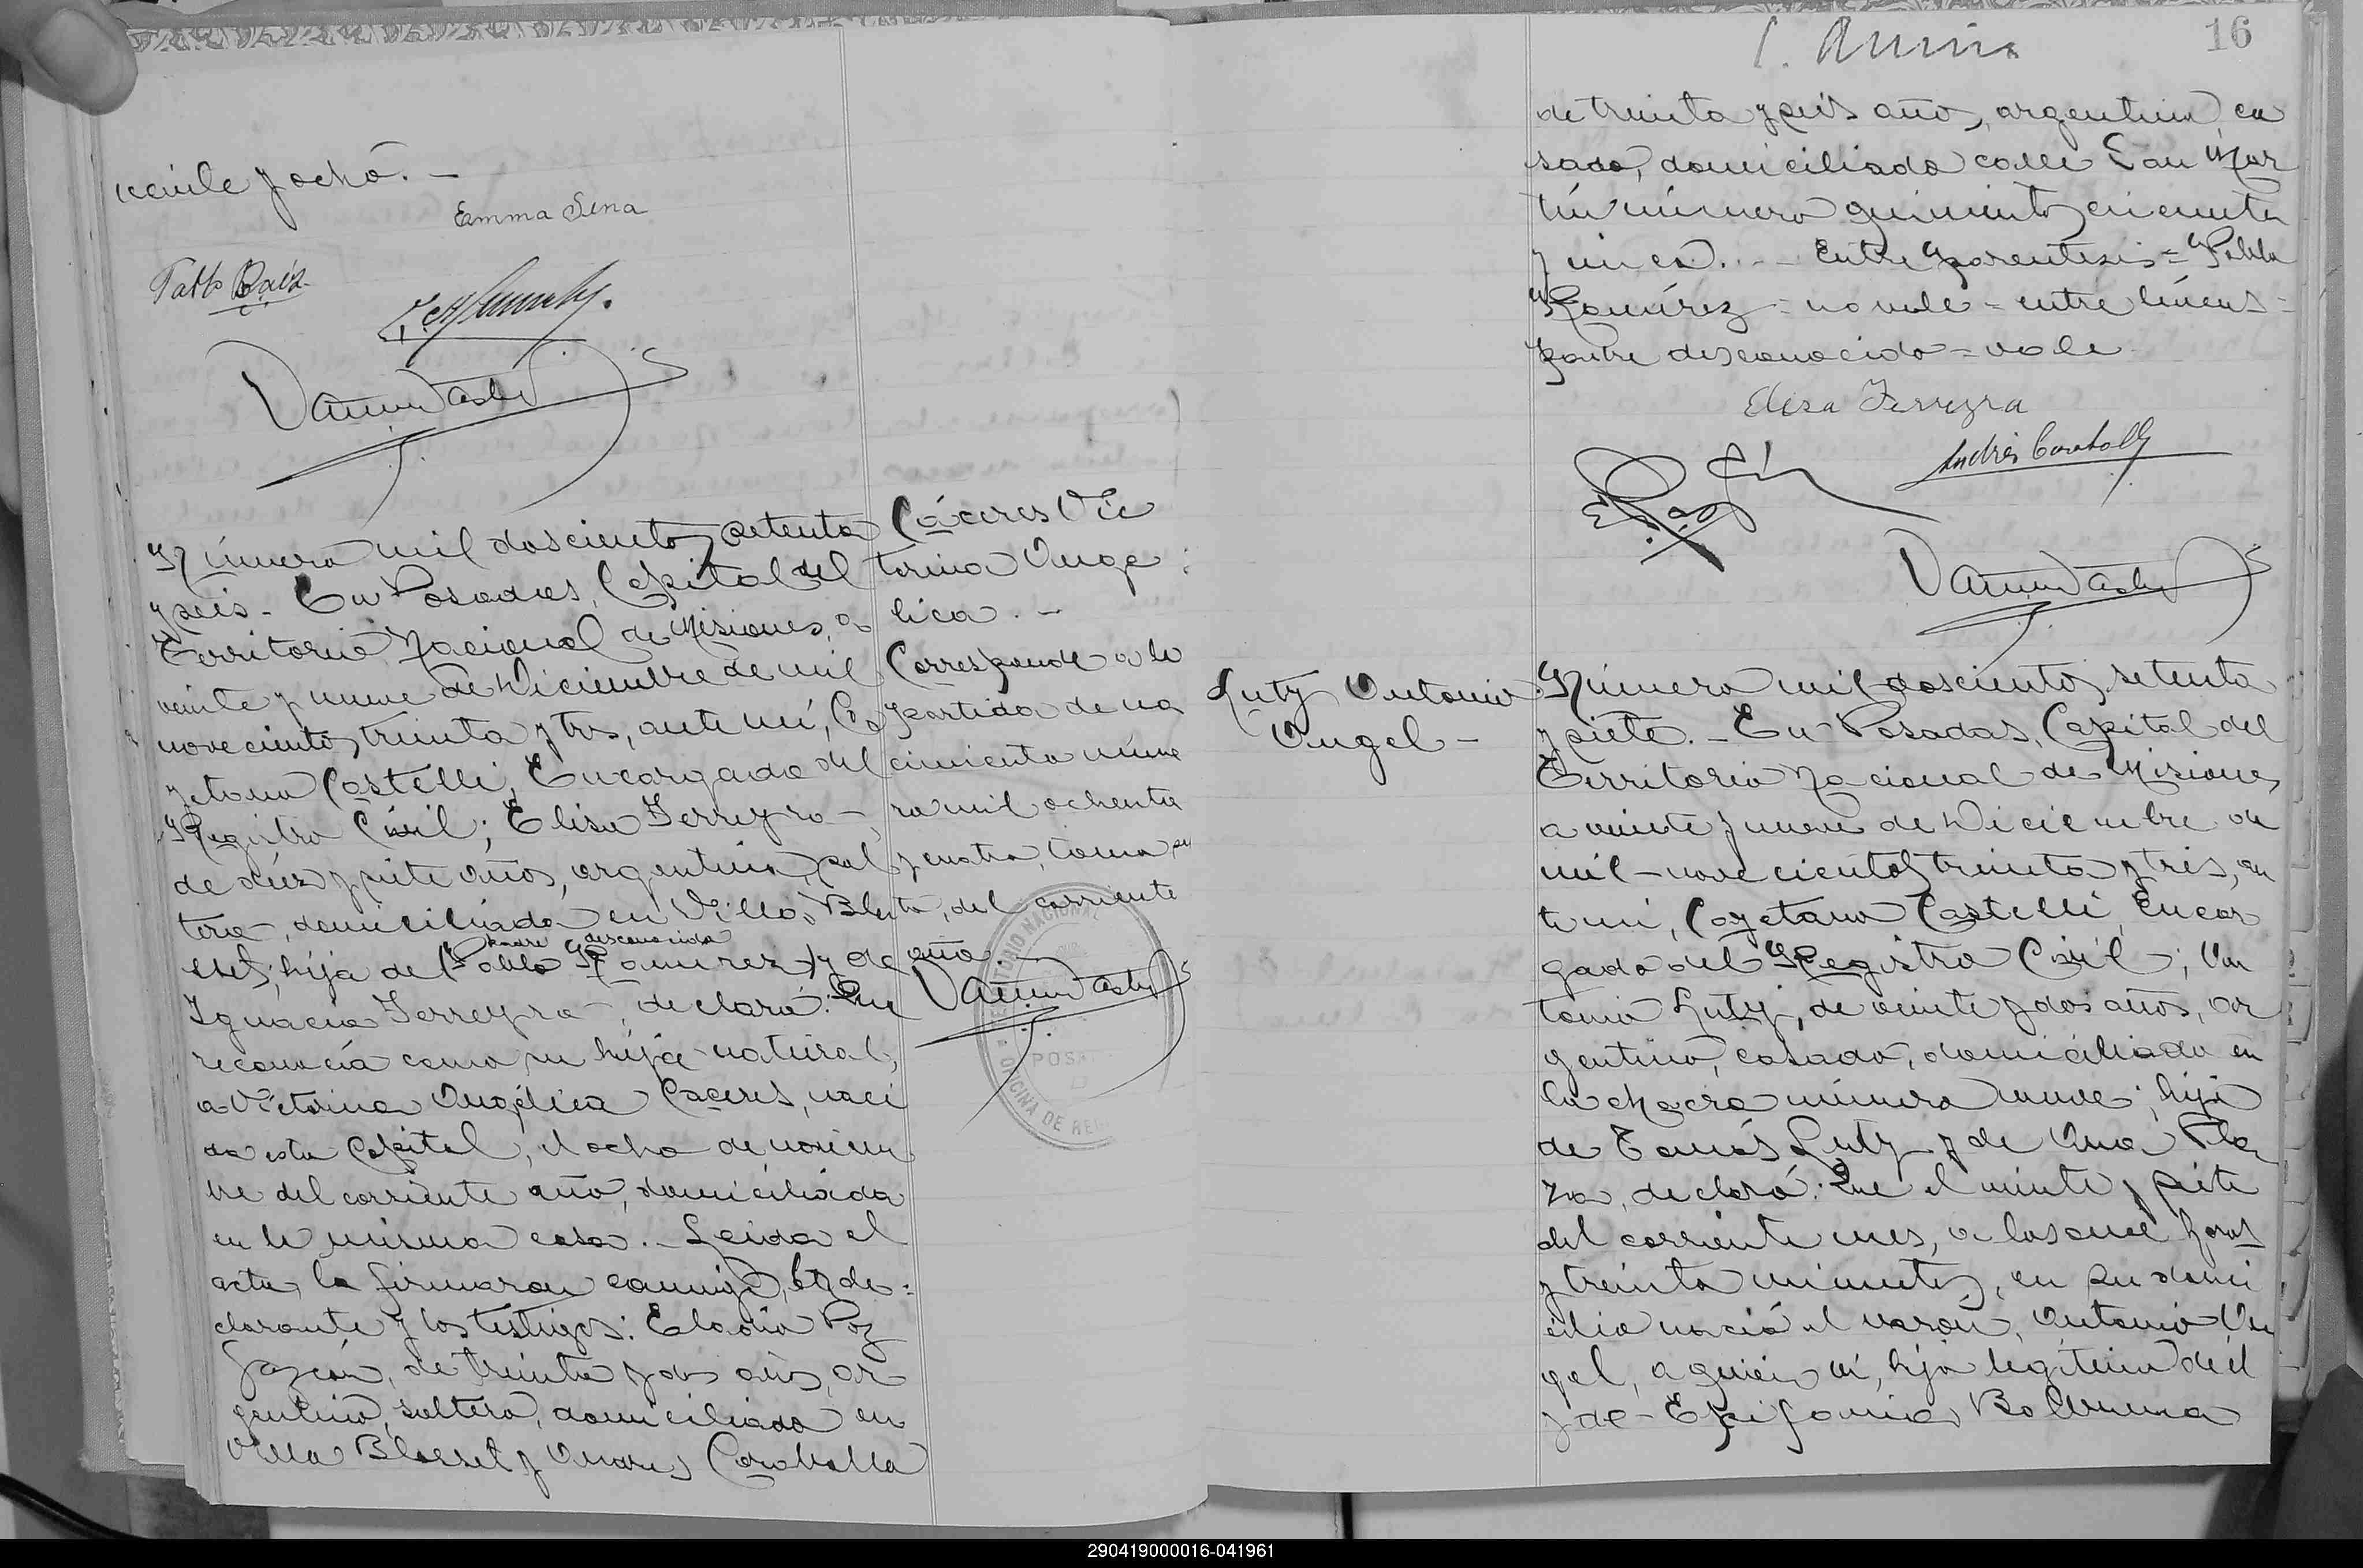 veinte y ocho. —
Emma Sena
Número mil doscientos setenta
y seis. - En Posadas, Capital del
Territorio Nacional de Misiones, a
veinte y nueve de Diciembre de mil
novecientos treinta y tres, ante mí, Ca
yetano Castelli, Encargado del
Registro Civil; Elisa Ferreyra -,
de diez y siete años, argentina, sol
tera, domiciliada en Villa Blo
sset; hija de (Pablo Ramirez) y de
padre desconocido
Ignacia Ferreyra -, declaró: Que
reconocía como su hija natural,
a Victorina Angélica Caceres, naci
da esta Capital, el ocho de noviem
bre del corriente año, domiciliada
en la misma casa. - Leida el
acta, la firmaron conmigo, la de:
clarante y los testigos:
de treinta y dos años, ar
gentino, soltero, domiciliado en
Villa Blosset y Andrés Caraballo
Cáceres Vic
torina Angé:
lica. -
Corresponde a la
partida de na
cimiento núme
ro mil ochenta
y cuatro, tomo
del corriente
año. -
OFICINA DE
16
de treinta y seis años, argentino, ca
sado, domiciliado calle San Mar
tín número quinientos cincuenta
y cinco. - Entre parentesis = Pablo
Ramírez = no vale = entre líneas =
padre desconocido = vale
Elisa Ferreyra
Andrés Caraballo
Luty Antonio
Angel -
Número mil doscientos setenta
y siete. - En Posadas, Capital del
Territorio Nacional de Misiones,
a veinte y nueve de Diciembre de
mil novecientos treinta y tres, an
te mí, Cayetano Castelli, Encar
gado del Registro Civil; An
tonio Luty, de veinte y dos años, ar
gentino, casado, domiciliado en
la chacra número nueve; hijo
de Tomás Luty y de Ana
declaró: Que el veinte y siete
del corriente mes, a las once horas
y treinta minutos, en su domi
cilio nació el varón, Antonio An
gel, a quien ví, hijo legítimo de él
y de - Epifania
290419000016-041961